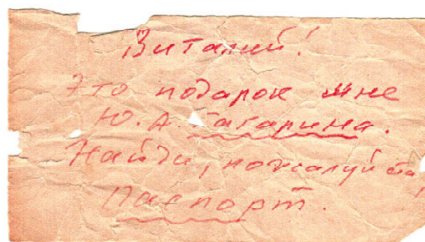 Виталий!
Это подарок мне
Ю. А. Гагарина.
Найди, пожалуйста,
паспорт.